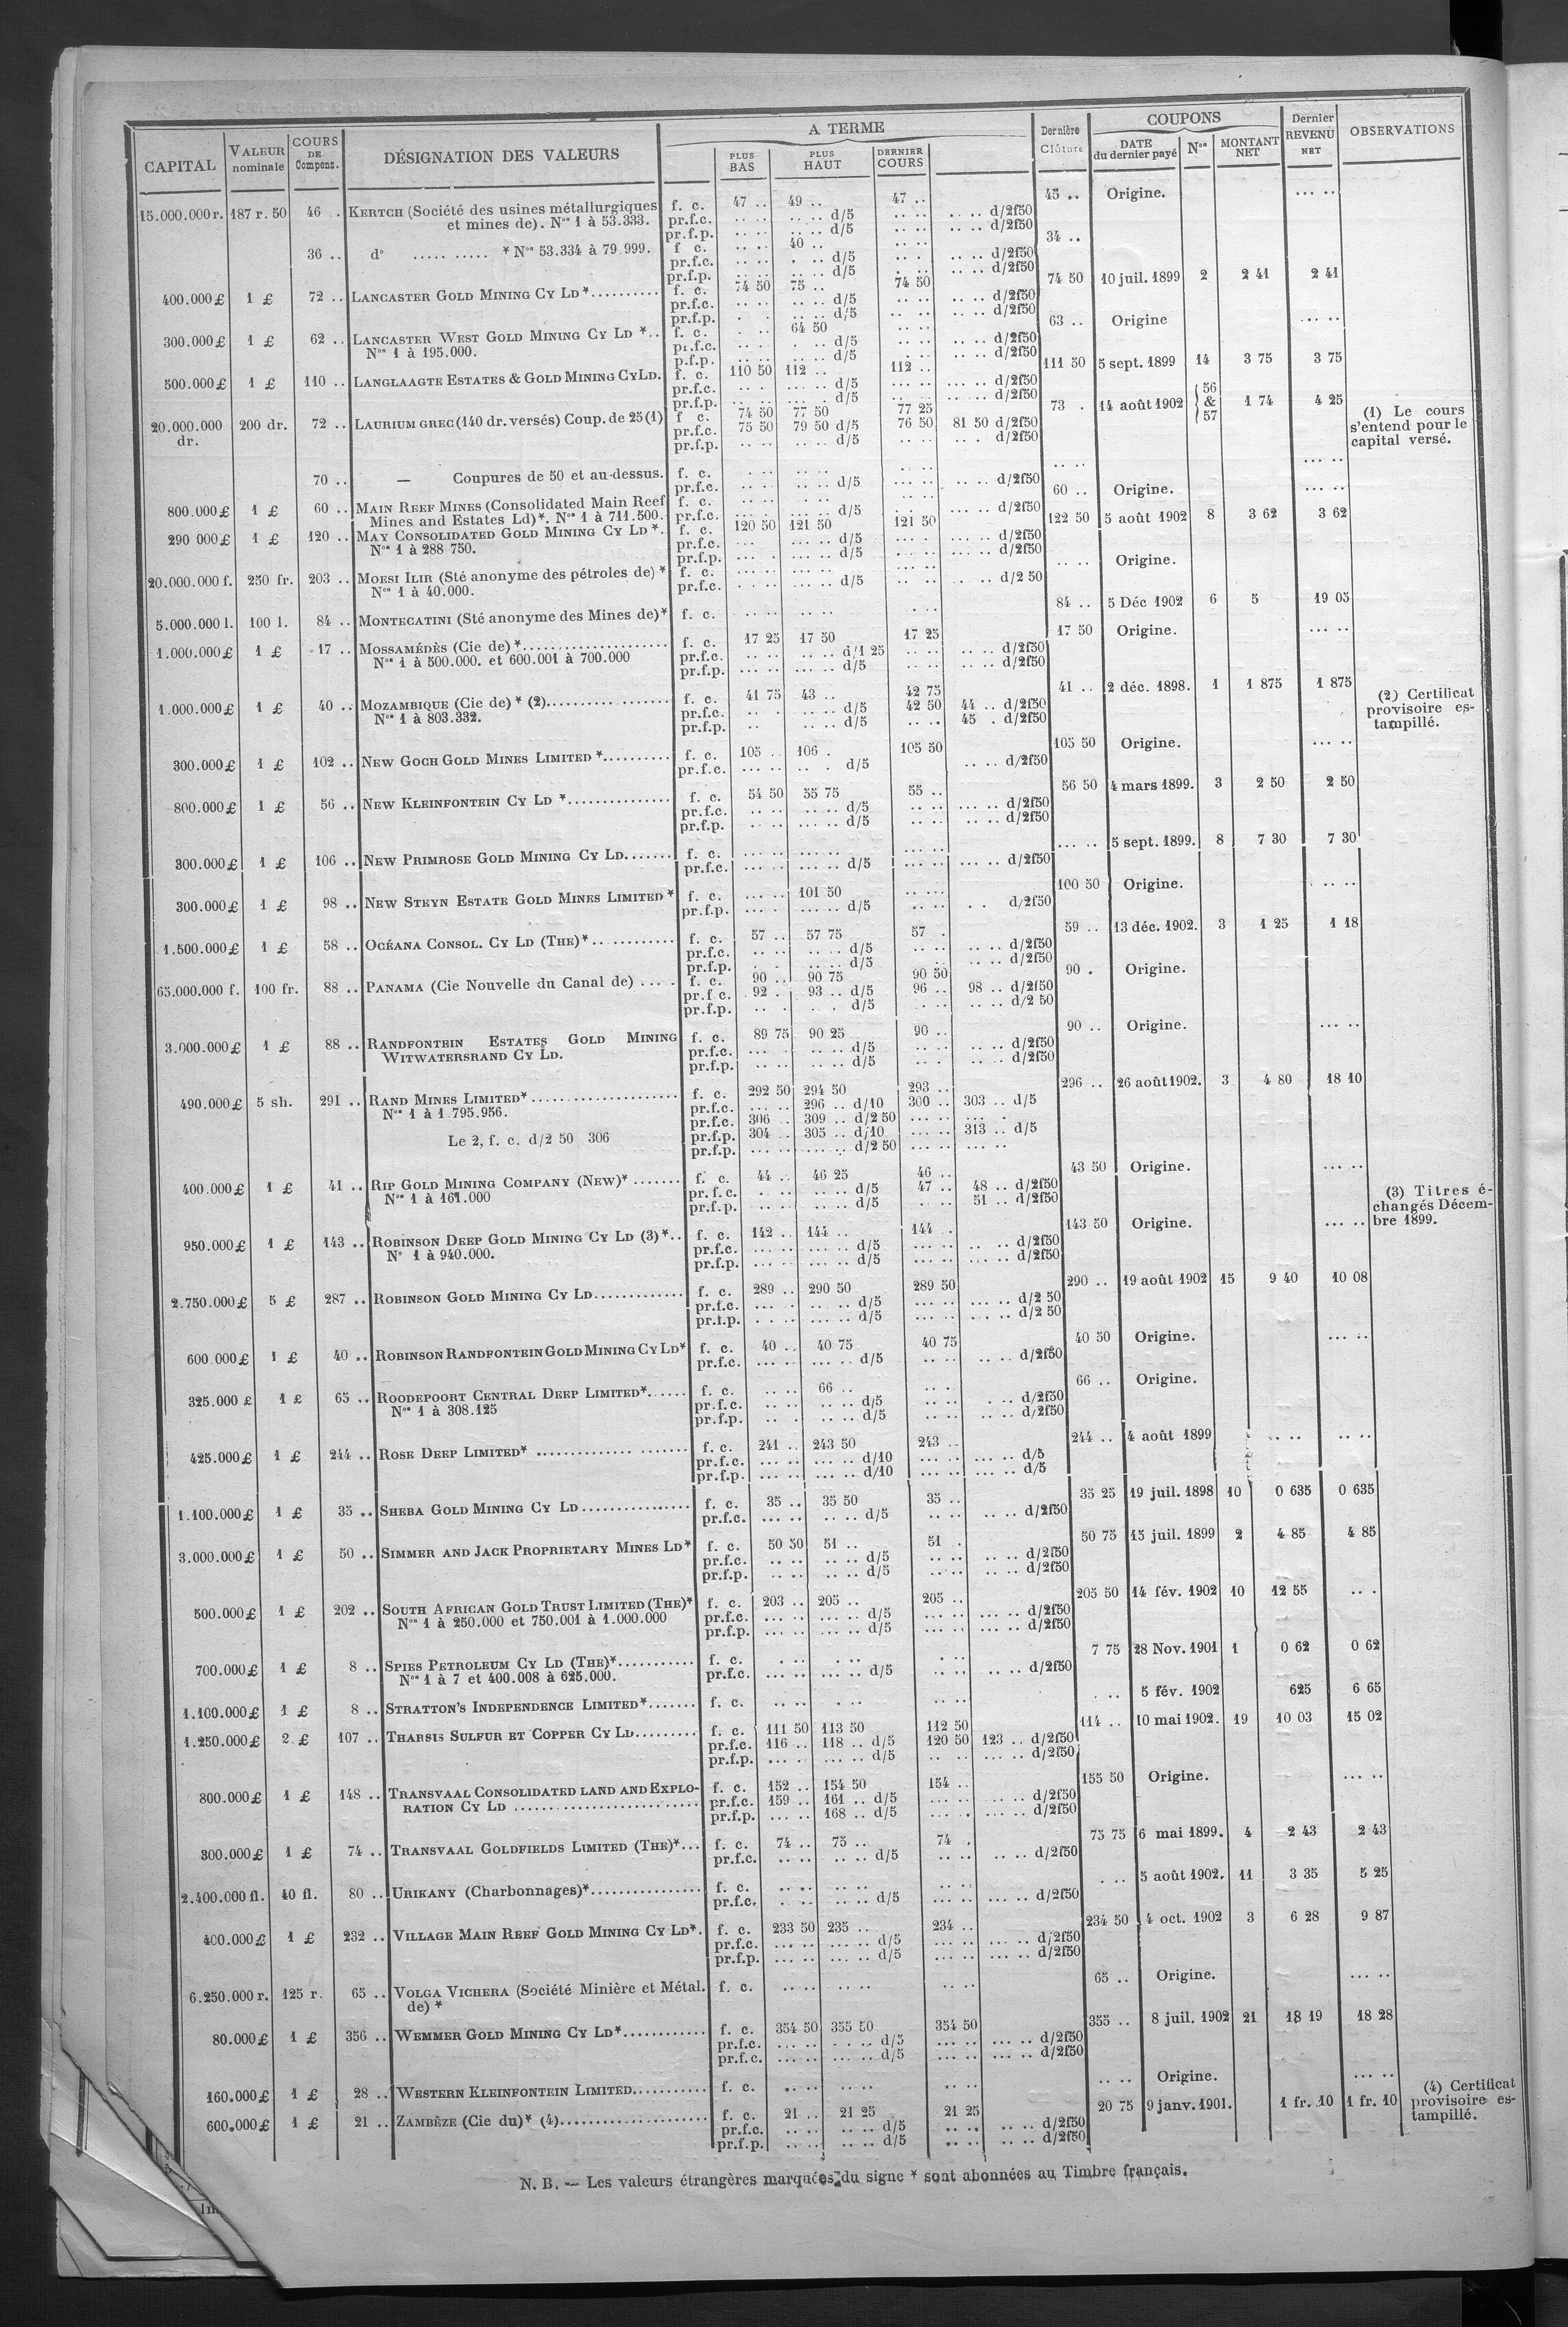 CAPITAL | VALEUR nominale | COURS DE Compens. | DÉSIGNATION DES VALEURS | A TERME | PLUS BAS | PLUS HAUT | DERNIER COURS | Dernière Clôture | COUPONS | DATE du dernier payé | Nos | MONTANT NET | Dernier REVENU NET | OBSERVATIONS
15.000.000 r. 187 r. 50 46 .. KERTCH (Société des usines métallurgiques f. c. 47 .. 49 .. 47 .. 45 .. Origine. ... ..
et mines de). Nos 1 à 53.333. pr.f.c. .. .. .. .. d/5 .. .. .. .. d/2f50
pr.f.p. .. .. .. .. d/5 .. .. .. .. d/2f50
36 .. d° ..... ..... * Nos 53.334 à 79.999. f. c. .. .. 40 .. .. .. 34 ..
pr.f.c. .. .. . .. d/5 .. . .. .. d/2f50
pr.f.p. .. .. .. .. d/5 . .. .. .. d/2f50
400.000 £ 1 £ 72 .. LANCASTER GOLD MINING CY LD *.......... f. c. 74 50 75 .. 74 50 74 50 10 juil. 1899 2 2 41 2 41
pr.f.c. .. .. .. .. d/5 .. .. .. .. d/2f50
pr.f.p. . . .. .. d/5 .. .. .. .. d/2f50
300.000 £ 1 £ 62 .. LANCASTER WEST GOLD MINING CY LD *.. f. c. . .. 64 50 .. .. 63 .. Origine ... ..
Nos 1 à 195.000. pr.f.c. .. .. . .. d/5 .. .. .. .. d/2f50
p.f.p. .. .. .. .. d/5 . .. .. .. d/2f50
500.000 £ 1 £ 110 .. LANGLAAGTE ESTATES & GOLD MINING CY LD. f. c. 110 50 112 .. 112 .. 111 50 5 sept. 1899 14 3 75 3 75
pr.f.c. .. . ... .. d/5 ... .. ... .. d/2f50
pr.f.p. .. .. ... . d/5 ... .. ... .. d/2f50
20.000.000 dr. 200 dr. 72 .. LAURIUM GREC (140 dr. versés) Coup. de 25 (1) f. c. 74 50 77 50 77 25 73 . 14 août 1902 56 & 57 1 74 4 25 (1) Le cours
pr.f.c. 75 50 79 50 d/5 76 50 81 50 d/2f50 s'entend pour le
pr.f.p. .. .. .. .. d/5 .. .. .. . d/2f50 capital versé.
70 .. — Coupures de 50 et au-dessus. f. c. . .. .. .. .. .. .. .. ... ..
pr.f.c. .. .. .. .. d/5 ... .. .. .. d/2f50
800.000 £ 1 £ 60 .. MAIN REEF MINES (Consolidated Main Reef f. c. .. .. .. .. .. .. 60 .. Origine. ... ..
Mines and Estates Ld)*. Nos 1 à 711.500. pr.f.c. ... .. ... .. d/5 .. . ... .. d/2f50
290 000 £ 1 £ 120 .. MAY CONSOLIDATED GOLD MINING CY LD *. f. c. 120 50 121 50 121 50 122 50 5 août 1902 8 3 62 3 62
Nos 1 à 288 750. pr.f.c. ... . ... .. d/5 ... . ... .. d/2f50
pr.f.p. ... .. ... .. d/5 ... .. ... .. d/2f50
20.000.000 f. 250 fr. 203 .. MOESI ILIR (Sté anonyme des pétroles de) * f. c. ... .. ... .. .. .. .. .. Origine.
Nos 1 à 40.000. pr.f.c. . .. ... .. d/5 .. .. . .. d/2 50
5.000.000 l. 100 l. 84 .. MONTECATINI (Sté anonyme des Mines de)* f. c. .. .. .. .. . .. 84 .. 5 Déc 1902 6 5 19 05
1.000.000 £ 1 £ 17 .. MOSSAMÉDÈS (Cie de) *..................... f. c. 17 25 17 50 17 25 17 50 Origine. ... ..
Nos 1 à 500.000. et 600.001 à 700.000 pr.f.c. .. .. .. .. d/1 25 .. .. .. .. d/2f50
pr.f.p. ... .. ... .. d/5 .. .. .. .. d/2f50
1.000.000 £ 1 £ 40 .. MOZAMBIQUE (Cie de) * (2)................. f. c. 41 75 43 .. 42 75 41 .. 2 déc. 1898. 1 1 875 1 875 (2) Certificat
Nos 1 à 803.332. pr.f.c. .. . .. .. d/5 42 50 44 .. d/2f50 provisoire es-
pr.f.p. .. .. .. d/5 .. .. 45 . d/2f50 tampillé.
300.000 £ 1 £ 102 .. NEW GOCH GOLD MINES LIMITED *.......... f. c. 105 .. 106 . 105 50 105 50 Origine. ... ..
pr.f.c. ... .. .. . d/5 .. .. d/2f50
800.000 £ 1 £ 56 .. NEW KLEINFONTEIN CY LD *............... f. c. 54 50 55 75 55 .. 56 50 4 mars 1899. 3 2 50 2 50
pr.f.c. .. .. .. .. d/5 .. .. ... .. d/2f50
pr.f.p. .. .. ... .. d/5 .. .. .. .. d/2f50
300.000 £ 1 £ 106 .. NEW PRIMROSE GOLD MINING CY LD....... f. c. ... .. ... .. ... .. ... .. 5 sept. 1899. 8 7 30 7 30
pr.f.c. ... .. ... .. d/5 ... .. ... .. d/2f50
300.000 £ 1 £ 98 .. NEW STEYN ESTATE GOLD MINES LIMITED * f. c. ... .. 101 50 .. ... 100 50 Origine. . .. ..
pr.f.p. ... . ... .. d/5 .. .. . . d/2f50
1.500.000 £ 1 £ 58 .. OCÉANA CONSOL. CY LD (THE)*............ f. c. 57 .. 57 75 57 . 59 .. 13 déc. 1902. 3 1 25 1 18
pr.f.c. .. .. .. .. d/5 .. .. .. .. d/2f50
pr.f.p. . . .. .. d/5 .. .. .. d/2f50
65.000.000 f. 100 fr. 88 .. PANAMA (Cie Nouvelle du Canal de) ..... f. c. 90 .. 90 75 90 50 90 . Origine.
pr.f.c. 92 . 93 .. d/5 96 .. 98 .. d/2f50
pr.f.p. .. . . . d/5 . .. .. .. d/2 50
3.000.000 £ 1 £ 88 .. RANDFONTEIN ESTATES GOLD MINING f. c. 89 75 90 25 90 .. 90 .. Origine. ... ..
WITWATERSRAND CY LD. pr.f.c. ... . .. .. d/5 .. .. .. .. d/2f50
pr.f.p. .. .. .. .. d/5 . .. .. .. d/2f50
490.000 £ 5 sh. 291 .. RAND MINES LIMITED*..................... f. c. 292 50 294 50 293 .. 296 .. 26 août 1902. 3 4 80 18 10
Nos 1 à 1.795.956. pr.f.c. ... .. 296 .. d/10 300 .. 303 .. d/5
pr.f.c. 306 .. 309 .. d/2 50 ... .. ... .
Le 2, f. c. d/2 50 306 pr.f.p. 304 .. 305 .. d/10 ... .. 313 .. d/5
pr.f.p. ... .. ... .. d/2 50 ... .. ... ..
400.000 £ 1 £ 41 .. RIP GOLD MINING COMPANY (NEW)* ....... f. c. 44 .. 46 25 46 .. 43 50 Origine. ... ..
Nos 1 à 161.000 pr.f.c. . .. .. .. d/5 47 .. 48 .. d/2f50 (3) Titres é-
pr.f.p. .. .. .. .. d/5 . .. 51 .. d/2f50 changés Décem-
950.000 £ 1 £ 143 .. ROBINSON DEEP GOLD MINING CY LD (3)*.. f. c. 142 .. 144 .. 144 .. 143 50 Origine. ... .. bre 1899.
N° 1 à 940.000. pr.f.c. ... .. ... .. d/5 ... .. .. .. d/2f50
pr.f.p. ... .. ... .. d/5 ... .. ... .. d/2f50
2.750.000 £ 5 £ 287 .. ROBINSON GOLD MINING CY LD............. f. c. 289 .. 290 50 289 50 290 .. 19 août 1902 15 9 40 10 08
pr.f.c. ... . ... .. d/5 ... .. ... .. d/2 50
pr.f.p. . . .. ... .. d/5 ... .. ... .. d/2 50
600.000 £ 1 £ 40 .. ROBINSON RANDFONTEIN GOLD MINING CY LD* f. c. 40 .. 40 75 40 75 40 50 Origine. ... ..
pr.f.c. ... .. ... .. d/5 .. .. .. .. d/2f50
325.000 £ 1 £ 65 .. ROODEPOORT CENTRAL DEEP LIMITED*...... f. c. .. .. 66 .. .. . 66 .. Origine.
Nos 1 à 308.125 pr.f.c. .. .. .. .. d/5 .. .. . .. d/2f50
pr.f.p. .. . .. .. d/5 .. .. .. .. d/2f50
425.000 £ 1 £ 244 .. ROSE DEEP LIMITED* ..................... f. c. 241 .. 243 50 243 .. 244 .. 4 août 1899 .. .. .. ..
pr.f.c. ... .. ... .. d/10 ... .. ... .. d/5
pr.f.p. ... .. ... .. d/10 ... .. ... .. d/5
1.100.000 £ 1 £ 35 .. SHEBA GOLD MINING CY LD................ f. c. 35 .. 35 50 35 .. 35 25 19 juil. 1898 10 0 635 0 635
pr.f.c. ... .. .. .. d/5 .. .. .. .. d/2f50
3.000.000 £ 1 £ 50 .. SIMMER AND JACK PROPRIETARY MINES LD* f. c. 50 50 51 .. 51 . 50 75 15 juil. 1899 2 4 85 4 85
pr.f.c. .. .. .. .. d/5 .. .. .. .. d/2f50
pr.f.p. .. .. .. .. d/5 .. .. .. .. d/2f50
500.000 £ 1 £ 202 .. SOUTH AFRICAN GOLD TRUST LIMITED (THE)* f. c. 203 .. 205 .. 205 .. 205 50 14 fév. 1902 10 12 55 .. .
Nos 1 à 250.000 et 750.001 à 1.000.000 pr.f.c. ... .. ... .. d/5 ... .. ... .. d/2f50
pr.f.p. ... .. ... .. d/5 ... .. ... .. d/2f50
700.000 £ 1 £ 8 .. SPIES PETROLEUM CY LD (THE)*........... f. c. . .. . .. . .. 7 75 28 Nov. 1901 1 0 62 0 62
Nos 1 à 7 et 400.008 à 625.000. pr.f.c. ... .. ... .. d/5 .. .. .. .. d/2f50
1.100.000 £ 1 £ 8 .. STRATTON'S INDEPENDENCE LIMITED*....... f. c. .. .. . .. .. .. . .. 5 fév. 1902 625 6 65
1.250.000 £ 2 £ 107 .. THARSIS SULFUR ET COPPER CY LD......... f. c. 111 50 113 50 112 50 114 .. 10 mai 1902. 19 10 03 15 02
pr.f.c. 116 .. 118 .. d/5 120 50 123 .. d/2f50
pr.f.p. ... .. ... .. d/5 .. .. ... .. d/2f50
800.000 £ 1 £ 148 .. TRANSVAAL CONSOLIDATED LAND AND EXPLO- f. c. 152 .. 154 50 154 .. 155 50 Origine. ... ..
RATION CY LD ........................... pr.f.c. 159 .. 161 .. d/5 ... .. ... .. d/2f50
pr.f.p. ... .. 168 .. d/5 ... . ... .. d/2f50
300.000 £ 1 £ 74 .. TRANSVAAL GOLDFIELDS LIMITED (THE)*... f. c. 74 .. 75 .. 74 . 75 75 6 mai 1899. 4 2 43 2 43
pr.f.c. .. .. .. .. d/5 .. .. .. .. d/2f50
2.400.000 fl. 40 fl. 80 .. URIKANY (Charbonnages)*................ f. c. .. .. .. .. .. .. . .. 5 août 1902. 11 3 35 5 25
pr.f.c. .. .. .. .. d/5 ... .. ... .. d/2f50
400.000 £ 1 £ 232 .. VILLAGE MAIN REEF GOLD MINING CY LD*. f. c. 233 50 235 .. 234 .. 234 50 4 oct. 1902 3 6 28 9 87
pr.f.c. ... .. ... .. d/5 ... .. ... .. d/2f50
pr.f.p. ... .. ... .. d/5 ... .. ... .. d/2f50
6.250.000 r. 125 r. 65 .. VOLGA VICHERA (Société Minière et Métal. f. c. .. .. .. .. .. .. 65 .. Origine. ... ..
de) *
80.000 £ 1 £ 356 .. WEMMER GOLD MINING CY LD*............ f. c. 354 50 355 50 354 50 355 .. 8 juil. 1902 21 18 19 18 28
pr.f.c. ... .. . . .. d/5 ... .. ... .. d/2f50
pr.f.c. ... .. ... .. d/5 ... .. ... .. d/2f50
160.000 £ 1 £ 28 .. WESTERN KLEINFONTEIN LIMITED........... f. c. .. .. .. .. .. .. .. .. Origine. ... .. (4) Certificat
600.000 £ 1 £ 21 .. ZAMBÈZE (Cie du)* (4)..................... f. c. 21 .. 21 25 21 25 20 75 9 janv. 1901. 1 fr. 10 1 fr. 10 provisoire es-
pr.f.c. .. .. .. .. d/5 .. .. .. .. d/2f50 tampillé.
pr.f.p. .. .. .. .. d/5 .. .. .. .. d/2f50
N. B. — Les valeurs étrangères marquées du signe * sont abonnées au Timbre français.